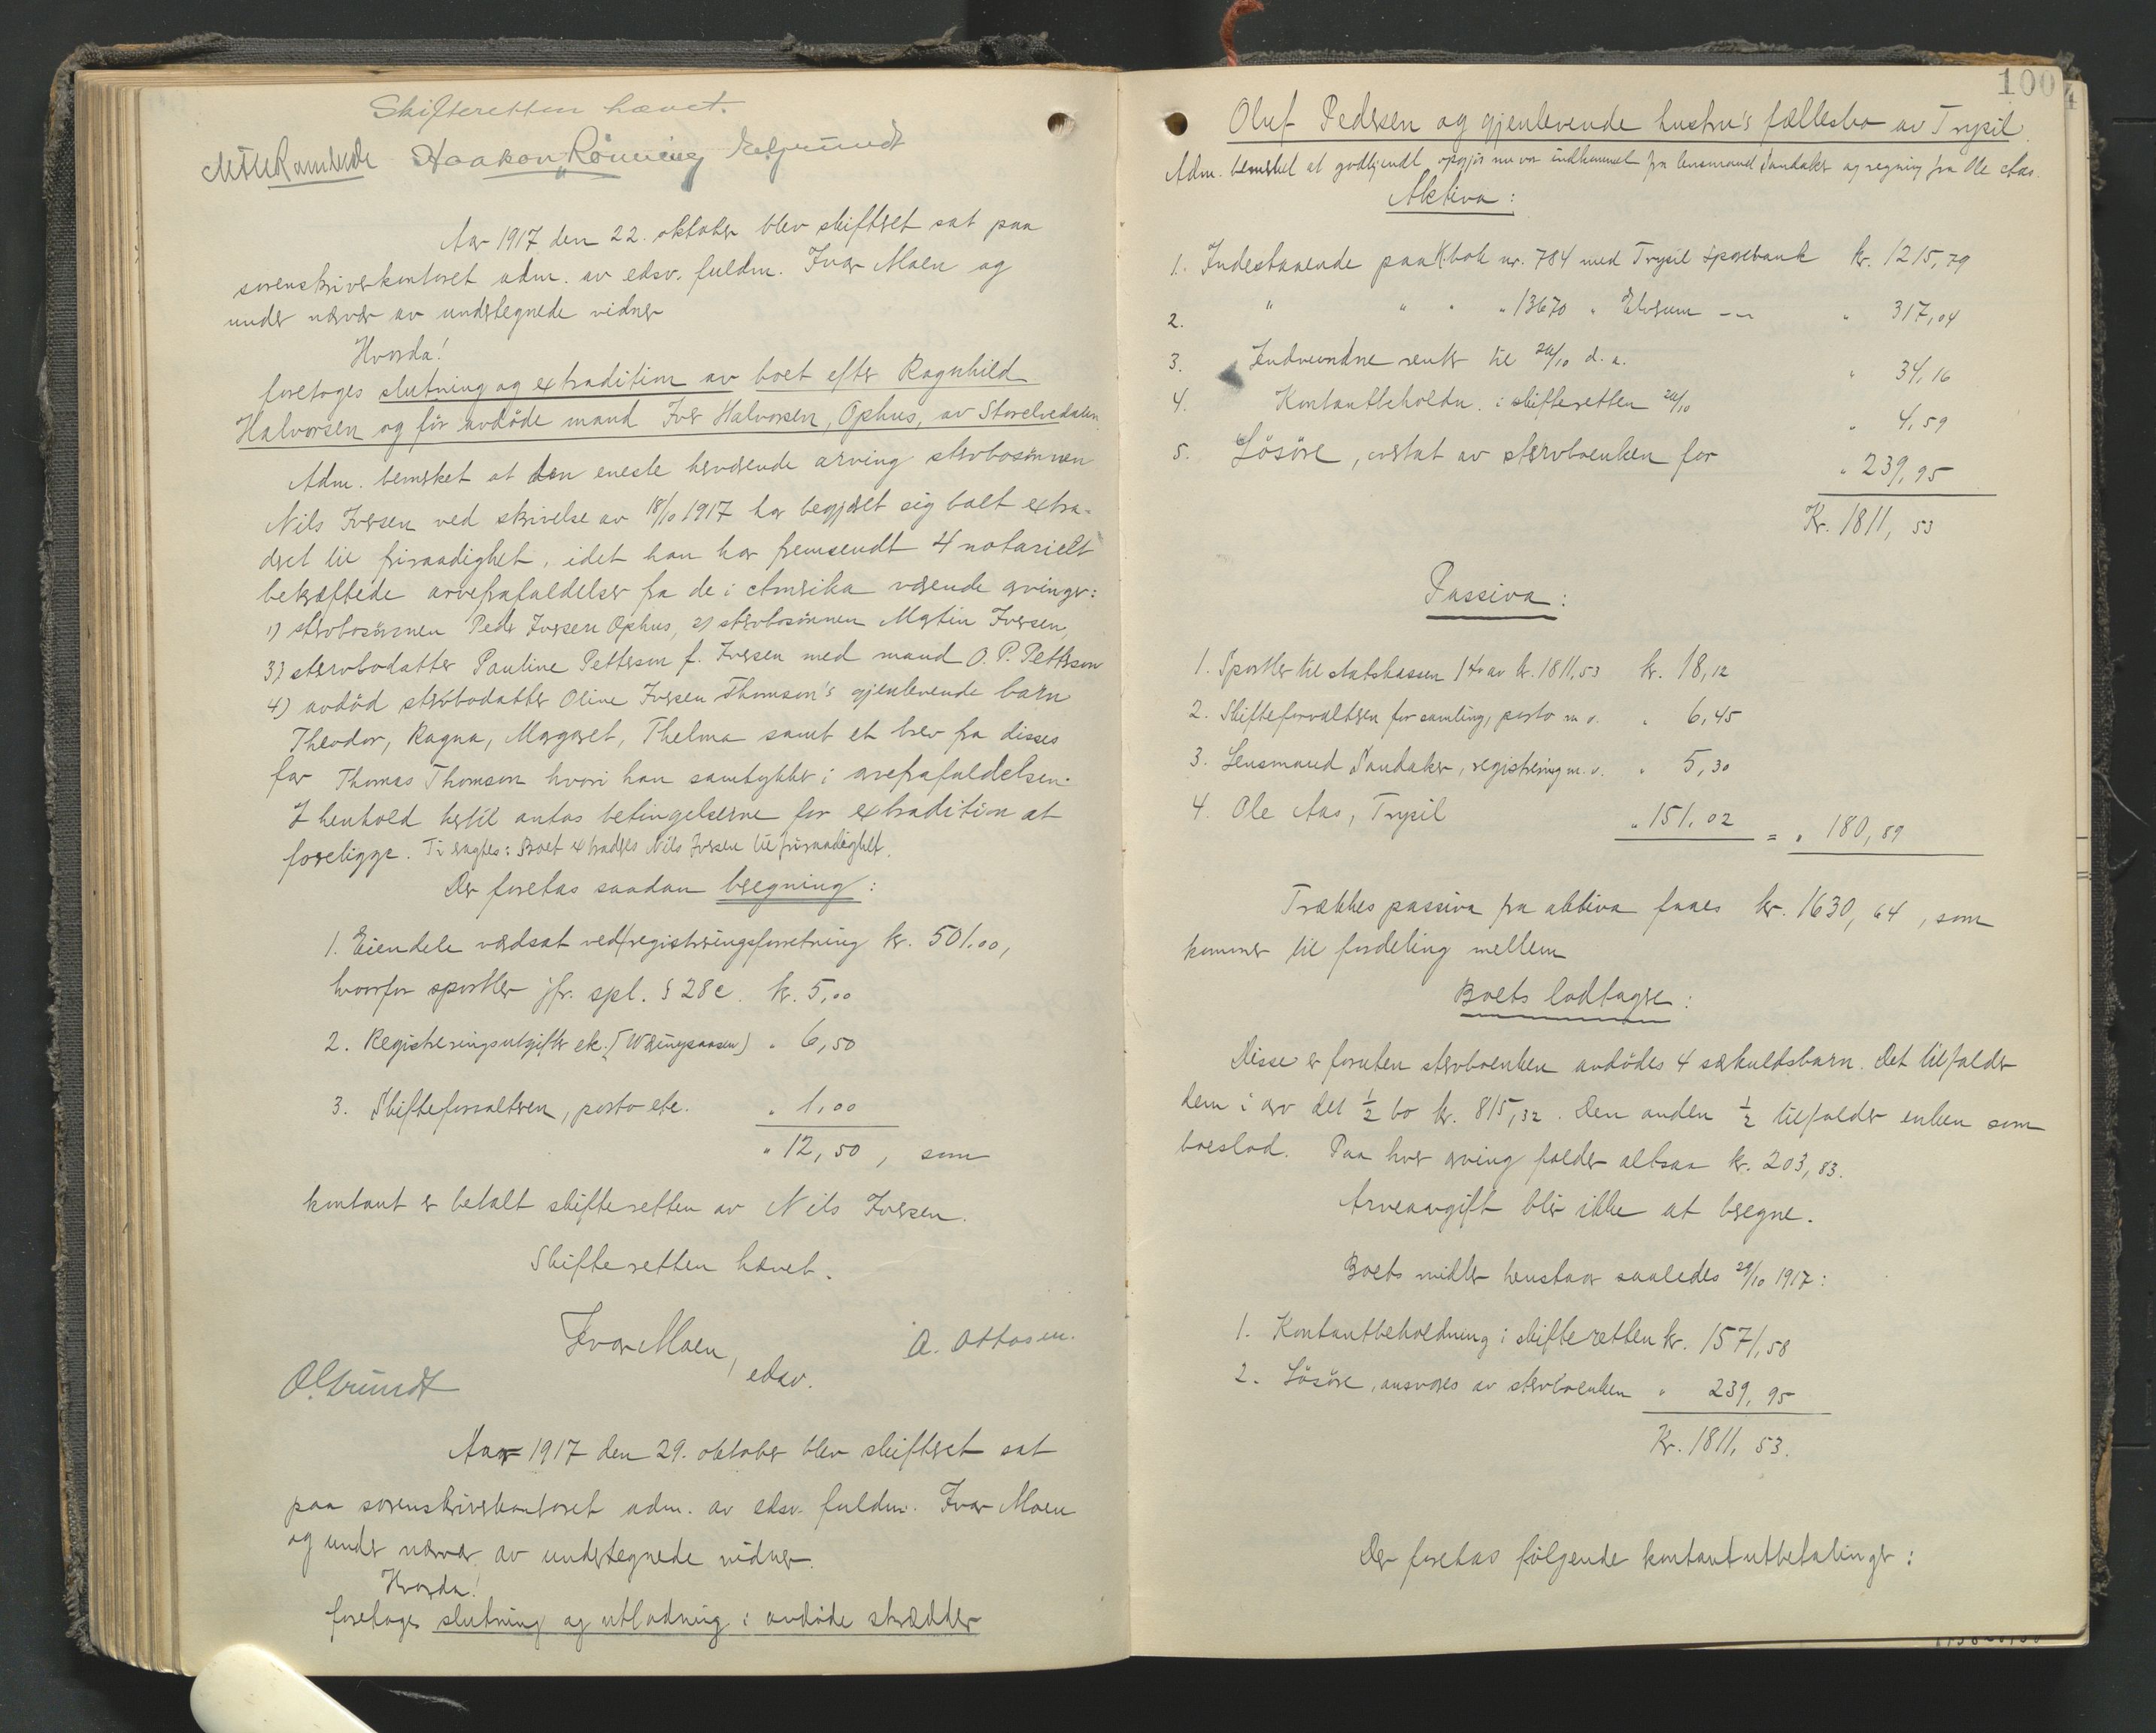 Skifteretten hævet.
Haakon Rönning
Aar 1917 den 22. oktober blev skifteret sat paa
sorenskriverkontoret adm. av edsv. fuldm. Ivar Moen og
under nærvær av undertegnede vidner
Hvorda!
foretoges slutning og extradition av boet efter Ragnhild
Halvorsen og før avdöde mand Iver Halvorsen, Ophus, av Storelvedalen.
Adm. bemerket at den eneste herværende arving sterbosönnen
Nils Iversen ved skrivelse av 18/10 1917 har begjæret sig boet extra-
deret til friraadighet, idet han har fremsendt 4 notarielt
bekræftede arvefrafaldelser fra de i Amerika værende arvinger:
1) sterbosönnen Peder Iversen Ophus, 2) sterbosönnen Martin Iversen,
3) sterbodatter Pauline Petterson f. Iversen med mand O. P. Petterson
4) avdöd sterbodatter Olive Iversen Thomson's gjenlevende barn
Theodor, Ragna, Margaret, Thelma samt et brev fra disses
far Thomas Thomson hvori han samtykker i arvefrafaldelsen.
I henhold hertil antas betingelserne for extradition at
foreligge. Ti eragtes: Boet extraderes Nils Iversen til friraadighet.
Der foretas saadan beregning:
1. Eiendele værdsat ved registreringsforretning kr. 501.00,
hvorfor sportler jfr. spl. § 28c. kr. 5,00
2. Registreringsutgifter etc. (Weringsaasen) " 6,50
3. Skifteforvalteren, porto etc. " 1,00
" 12,50, som
kontant er betalt skifteretten av Nils Iversen.
Skifteretten hævet.
Ivar Moen, edsv.
A. Ottosen.
O. Grundt
Aar 1917 den 29. oktober blev skifteret sat
paa sorenskriverkontoret adm. av edsv. fuldm. Ivar Moen
og under nærvær av undertegnede vidner.
Hvorda!
foretoges slutning og utlodning i avdöde skrædder
100
Oluf Pedersen og gjenlevende hustru's fællesbo av Trysil.
Adm. bemerket at godkjendt opgjör nu var indkommet fra lensmand Sandaker og regning fra Ole Aas.
Aktiva:
1. Indestaaende paa K.bok nr. 784 med Trysil Sparebank kr. 1215,79
2. " " " " 13670 " Elverum — " 317,04
3. Indvundne renter til 24/10 d.a. " 34,16
4. Kontantbeholdn. i skifteretten 24/10 " 4,59
5. Lösöre, overtat av sterboenken for " 239,95
Kr. 1811,53
Passiva:
1. Sportler til statskassen 1% av kr. 1811,53 kr. 18,12
2. Skifteforvalteren for samling, porto m.v. " 6,45
3. Lensmand Sandaker, registrering m.v. " 5,30
4. Ole Aas, Trysil " 151,02 = " 180,89
Trækkes passiva fra aktiva faaes kr. 1630,64, som
kommer til fordeling mellem
Boets lodtagere:
Disse er foruten sterboenken avdödes 4 særkuldsbarn. Det tilfalder
dem i arv det 1/2 bo kr. 815,32. Den anden 1/2 tilfalder enken som
boeslod. Paa hver arving falder altsaa kr. 203,83.
Arveavgift blir ikke at beregne.
Boets midler henstaar saaledes 29/10 1917:
1. Kontantbeholdning i skifteretten kr. 1571,58
2. Lösöre, ansvares av sterboenken " 239,95
Kr. 1811,53.
Der foretas fölgende kontantutbetalinger: